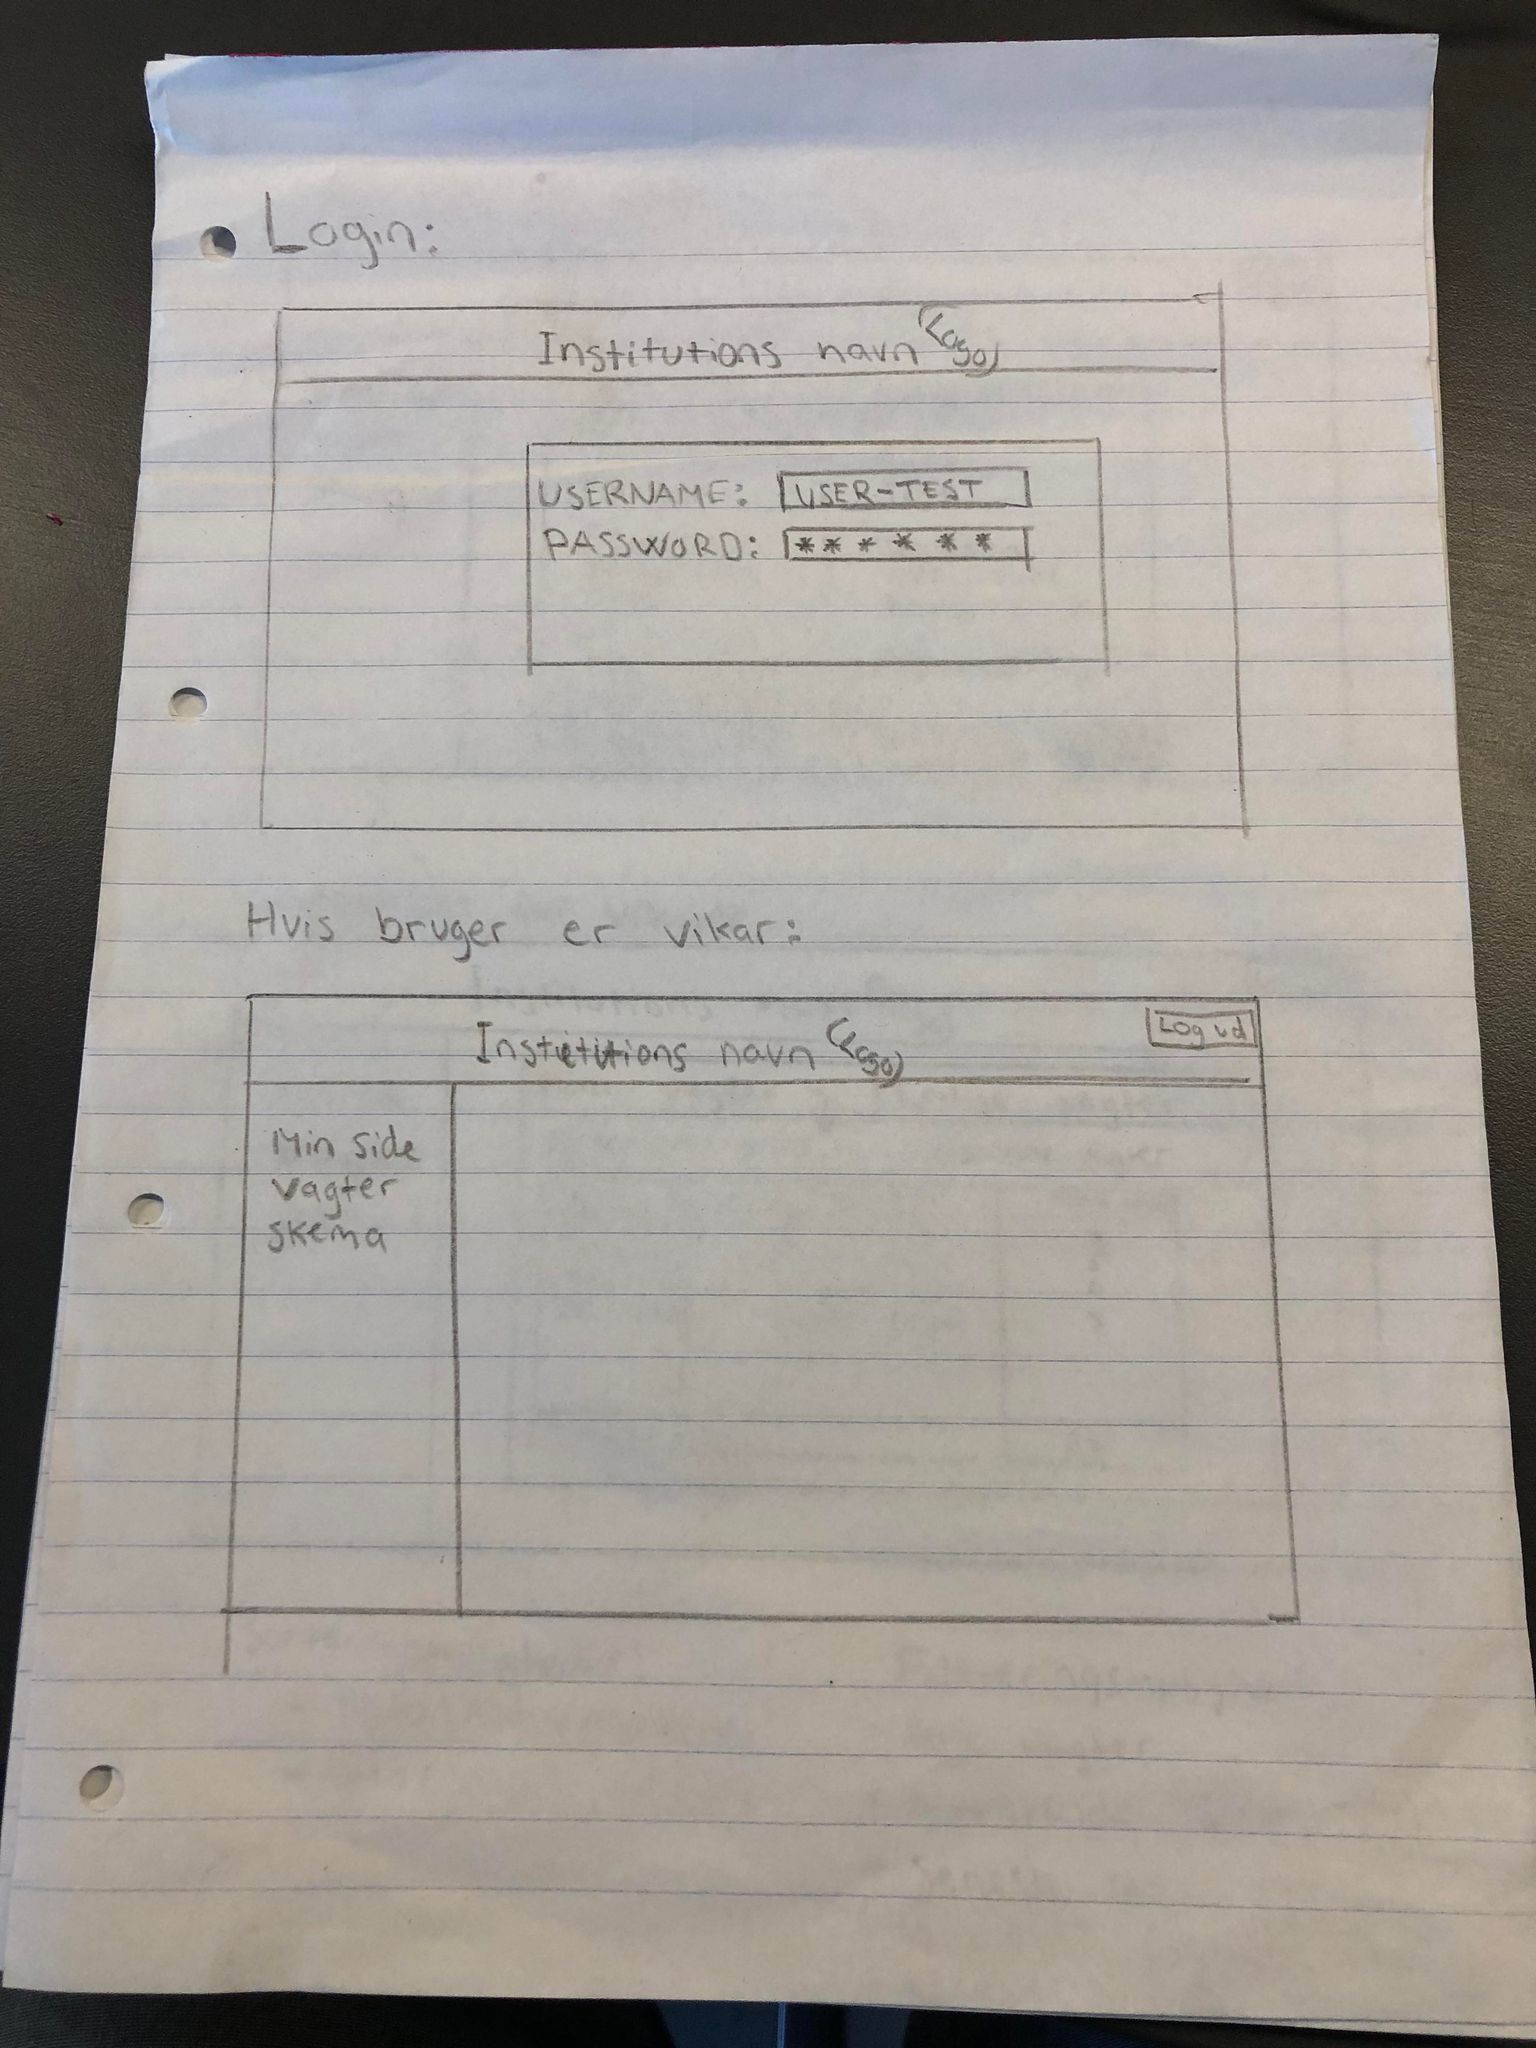 Login:
Institutions navn (Logo)
USERNAME: USER-TEST
PASSWORD: ******
Hvis bruger er vikar:
Log ud
Institutions navn (Logo)
Min side
Vagter
Skema